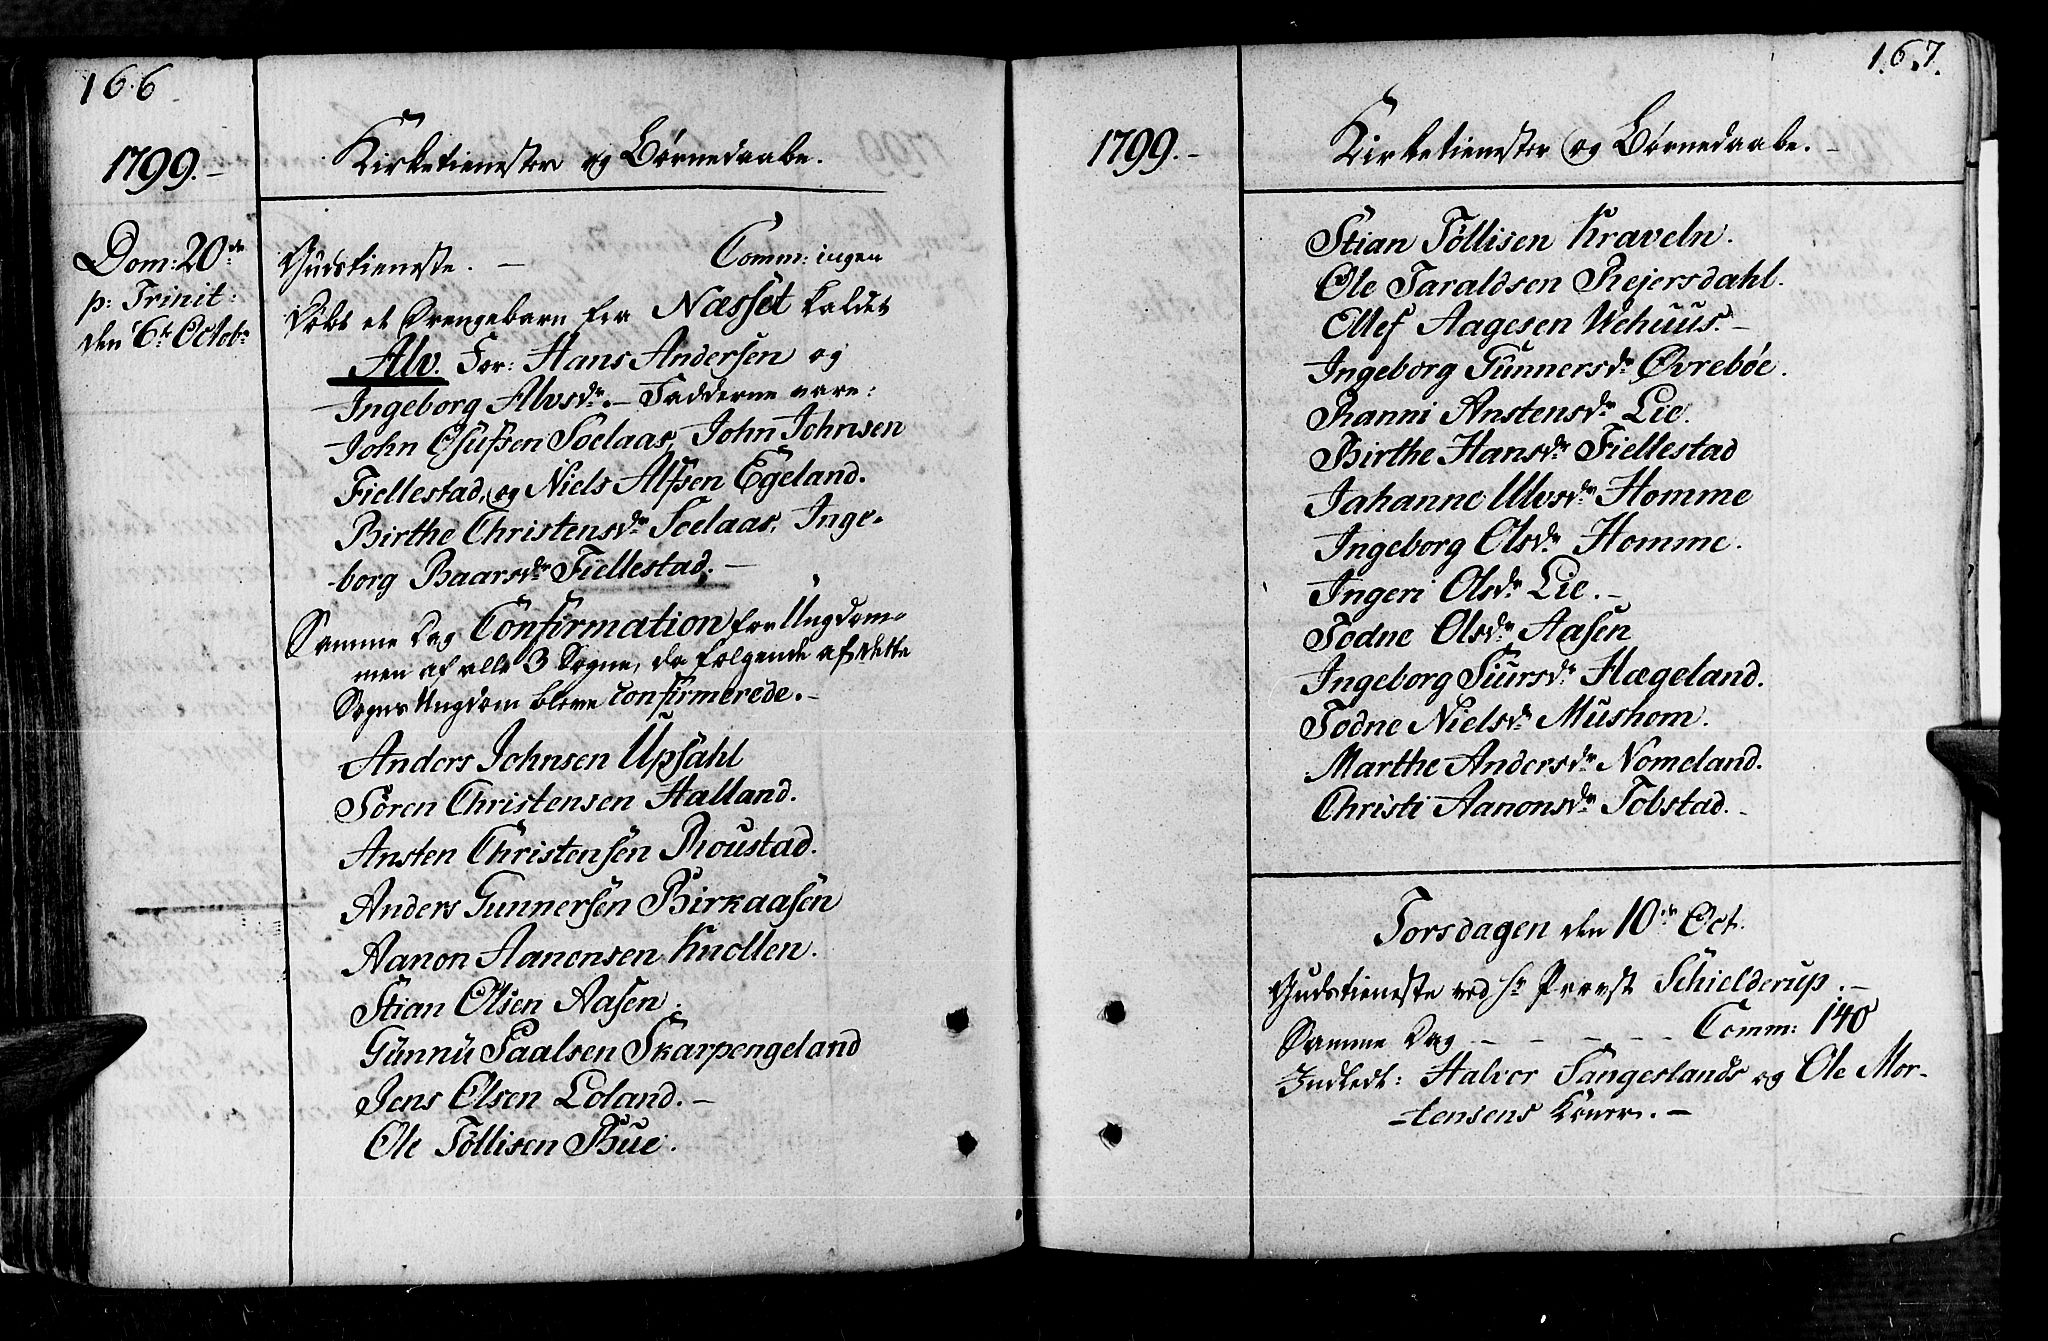 166
1799.-
Kirketienester og Børnedaabe.
Dom: 20de
p: Trinit:
den 6te Octobr
Gudstieneste. - Comm: ingen
Døbt et Drengebarn fra Næsset kaldet
Alv. For: Hans Andersen og
Ingeborg Alvsdr. - Fadderne vare:
John Osufsen Soelaas, John Johnsen
Fiellestad, og Niels Alfsen Egeland.
Birthe Christensdr Soelaas, Inge-
borg Baarsdr Fiellestad. -
Samme Dag Confirmation for Ungdom-
men af alle 3 Sogne, da følgende af dette
Sogns Ungdom bleve confirmerede. -
Anders Johnsen Upsahl
Sören Christensen Halland.
Ansten Christensen Roustad.
Anders Gunnersen Birkaasen
Aanon Aanonsen Knollen.
Stian Olsen Aasen.
Günnü Paalsen Skarpengeland
Jens Olsen Loland. -
Ole Töllisen Bue.
167.
1799. -
Kirketienester og Børnedaabe. -
Stian Töllisen Kraveln.
Ole Taraldsen Reiersdahl.
Ellef Aagesen Wehuus. -
Ingeborg Gunnersdr Øvrebøe.
Ranni Anstensdr Lie.
Birthe Hansdr Fiellestad
Jahanne Ulvsdr Homme
Ingeborg Olsdr Homme.
Ingeri Olsdr Lie. -
Todne Olsdr Aasen
Ingeborg Siursdr Hægeland.
Todne Nielsdr Mushom.
Marthe Andersdr Nomeland.
Christi Aanonsdr Tobstad. -
Torsdagen den 10de Oct.
Gudstieneste ved Hr Provst Schielderup. -
Samme Dag - - - - - Comm: 140
Indledt: Halvor Tangeslands og Ole Mor-
-tensens Koner. -